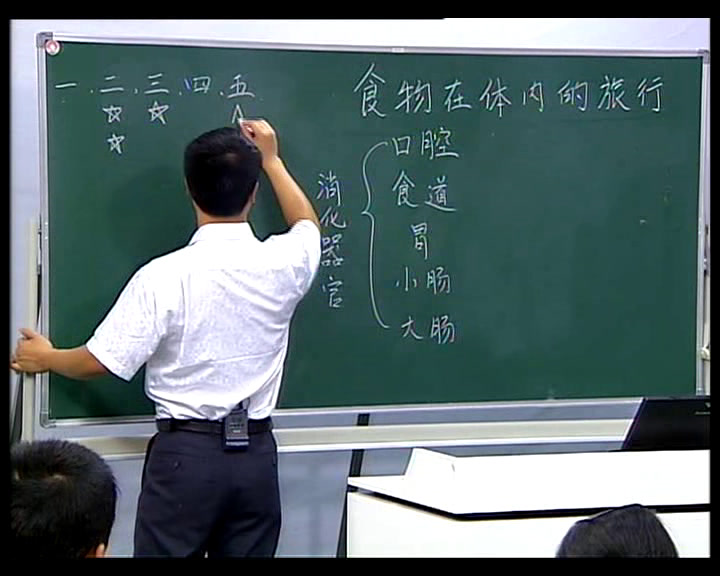 一、二、三、四、五
食物在体内的旅行
消化器官
口腔
食道
胃
小肠
大肠